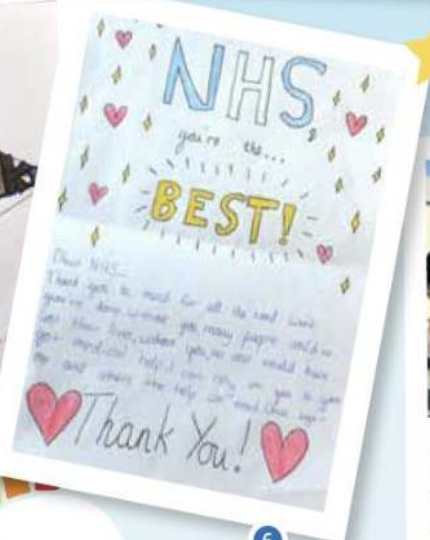 NHS,
you're the...
BEST!
Dear NHS...
Thank you so much for all the hard work
you've done, without you many people would've
lost their lives, without you, no one would have
got medical help. I can rely on you to give
me and others the help we need. Once again
Thank You!